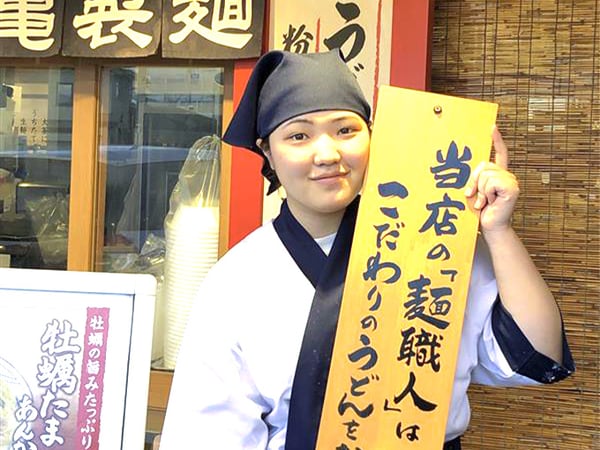 亀製麺
うど
粉
当店の「麺職人」は
こだわりのうどんを
牡蠣の旨みたっぷり
牡蠣たま
あんか